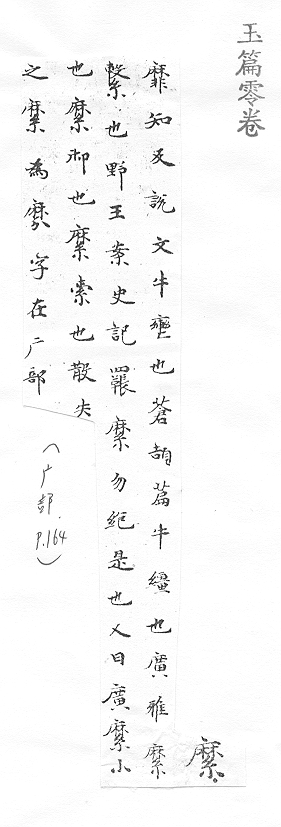 玉篇零卷
縻
靡知反說文牛轡也蒼頡篇牛繮也廣雅縻
繫也野王案史記羈縻勿絕是也又曰廣縻小
也縻御也縻索也散失
之縻為字在广部
(广部 P.164)